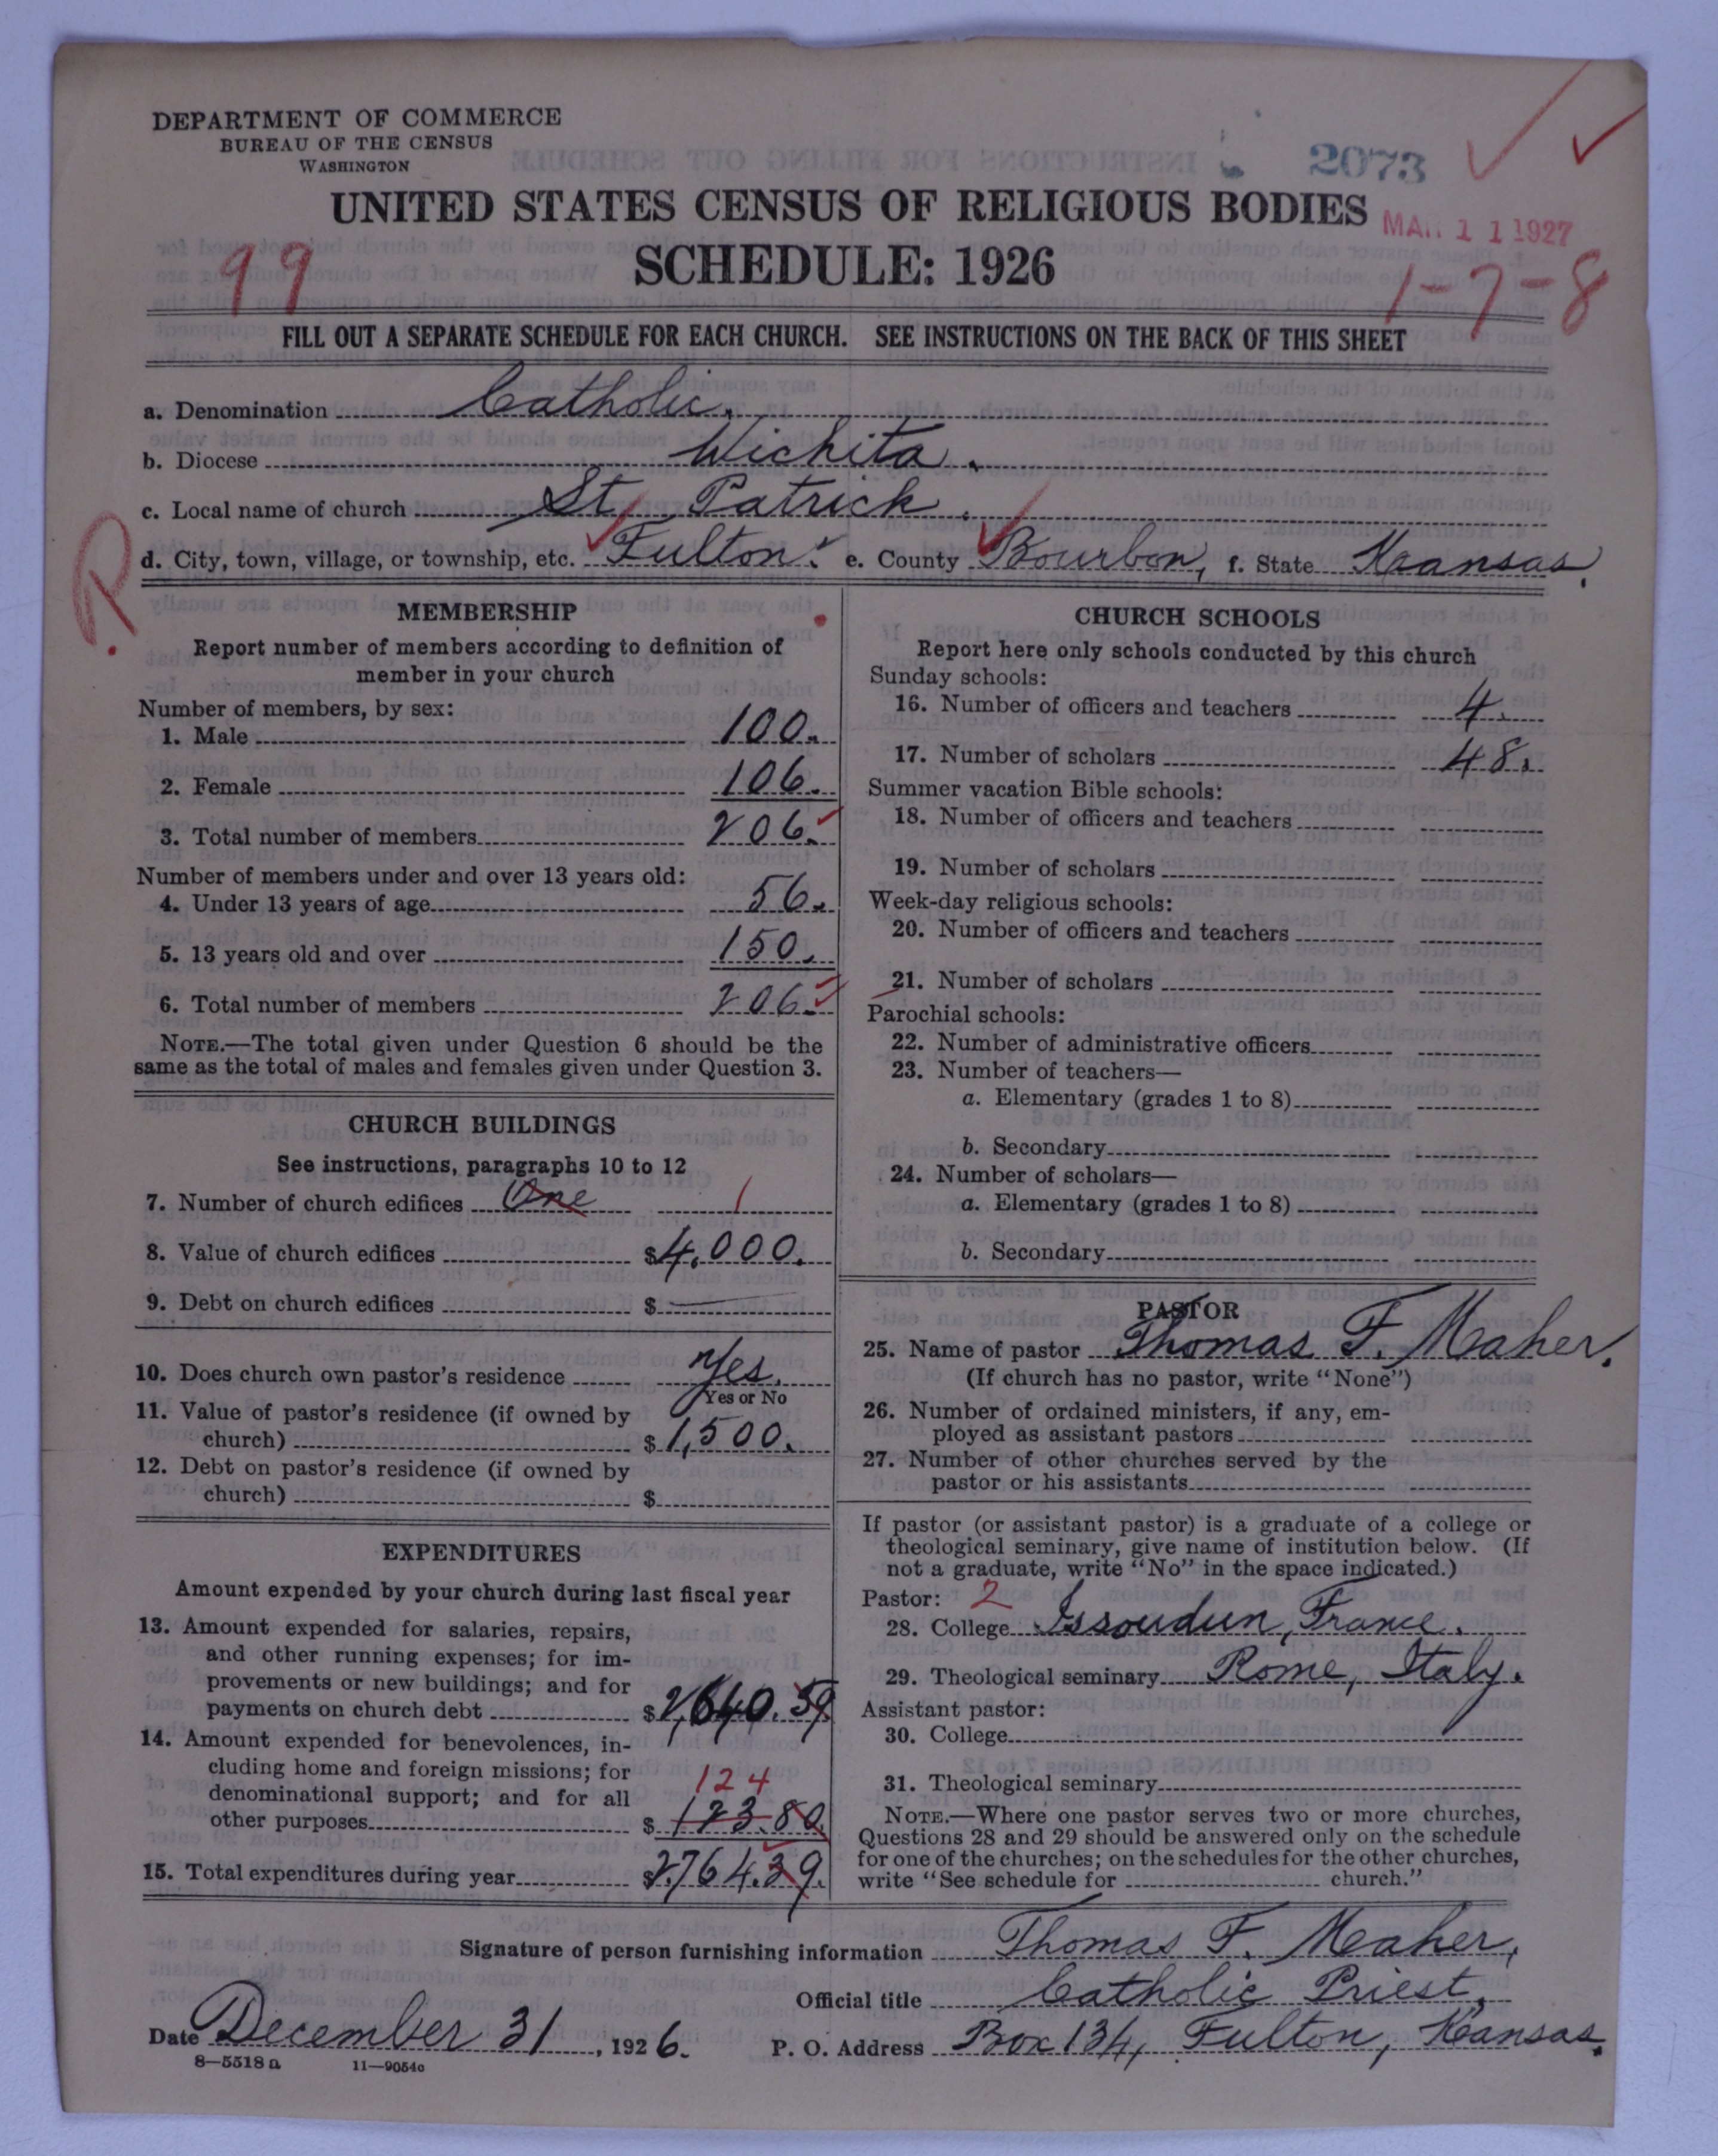 DEPARTMENT OF COMMERCE
BUREAU OF THE CENSUS
WASHINGTON
2073
UNITED STATES CENSUS OF RELIGIOUS BODIES
MAR 11 1927
99
SCHEDULE: 1926
1-7-8
FILL OUT A SEPARATE SCHEDULE FOR EACH CHURCH. SEE INSTRUCTIONS ON THE BACK OF THIS SHEET
a. Denomination Catholic.
b. Diocese Wichita.
c. Local name of church St Patrick.
d. City, town, village, or township, etc. Fulton. e. County Bourbon, f. State Kansas.
P.
MEMBERSHIP
Report number of members according to definition of
member in your church
Number of members, by sex:
1. Male 100.
2. Female 106.
3. Total number of members 206.
Number of members under and over 13 years old:
4. Under 13 years of age 56.
5. 13 years old and over 150.
6. Total number of members 206.
NOTE.—The total given under Question 6 should be the
same as the total of males and females given under Question 3.
CHURCH BUILDINGS
See instructions, paragraphs 10 to 12
7. Number of church edifices One 1
8. Value of church edifices $4,000.
9. Debt on church edifices $ —
10. Does church own pastor's residence Yes.
Yes or No
11. Value of pastor's residence (if owned by
church) $1,500.
12. Debt on pastor's residence (if owned by
church) $
EXPENDITURES
Amount expended by your church during last fiscal year
13. Amount expended for salaries, repairs,
and other running expenses; for im-
provements or new buildings; and for
payments on church debt $2,640.59
14. Amount expended for benevolences, in-
cluding home and foreign missions; for
124
denominational support; and for all
other purposes $123.80
15. Total expenditures during year $2,764.39.
CHURCH SCHOOLS
Report here only schools conducted by this church
Sunday schools:
16. Number of officers and teachers 4.
17. Number of scholars 48.
Summer vacation Bible schools:
18. Number of officers and teachers
19. Number of scholars
Week-day religious schools:
20. Number of officers and teachers
21. Number of scholars
Parochial schools:
22. Number of administrative officers
23. Number of teachers—
a. Elementary (grades 1 to 8)
b. Secondary
24. Number of scholars—
a. Elementary (grades 1 to 8)
b. Secondary
PASTOR
25. Name of pastor Thomas F. Maher.
(If church has no pastor, write "None")
26. Number of ordained ministers, if any, em-
ployed as assistant pastors
27. Number of other churches served by the
pastor or his assistants
If pastor (or assistant pastor) is a graduate of a college or
theological seminary, give name of institution below. (If
not a graduate, write "No" in the space indicated.)
Pastor: 2
28. College Issoudun, France.
29. Theological seminary Rome, Italy.
Assistant pastor:
30. College
31. Theological seminary
NOTE.—Where one pastor serves two or more churches,
Questions 28 and 29 should be answered only on the schedule
for one of the churches; on the schedules for the other churches,
write "See schedule for church."
Signature of person furnishing information Thomas F. Maher,
Official title Catholic Priest.
Date December 31, 1926. P. O. Address Box 134, Fulton, Kansas.
8—5518 a 11—9054c